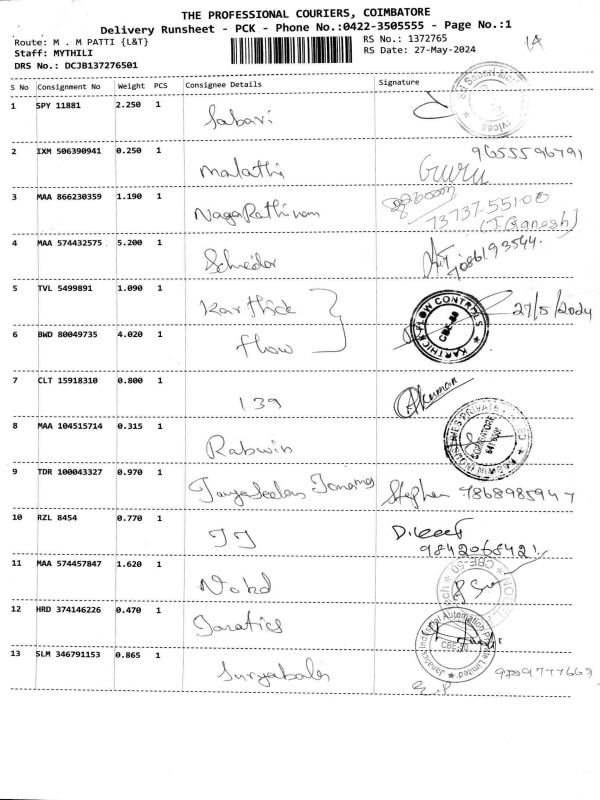 THE PROFESSIONAL COURIERS, COIMBATORE
Delivery Runsheet - PCK - Phone No.:0422-3505555 - Page No.:1
Route: M . M PATTI {L&T}
RS No.: 1372765
Staff: MYTHILI
RS Date: 27-May-2024
DRS No.: DCJB137276501
S No Consignment No Weight PCS Consignee Details Signature
1 SPY 11881 2.250 1 Sabari
2 IXM 506390941 0.250 1 Malathi Guru 9655596791
3 MAA 866230359 1.190 1 NagaRathinam 73737-55100
(J.Ganesh)
4 MAA 574432575 5.200 1
5 TVL 5499891 1.090 1 Karthick 27/5/2024
KARTHICK FLOW CONTROLS
CBE-50
6 BWD 80049735 4.020 1 flow
7 CLT 15918310 0.800 1 139 Akumar
8 MAA 104515714 0.315 1 Rabwin
COIMBATORE
9 TDR 100043327 0.970 1 Stephen 9868985947
10 RZL 8454 0.770 1 JJ
9842068421
11 MAA 574457847 1.620 1
CBE-50
12 HRD 374146226 0.470 1 Janatics
Janatics India Industrial Automation Private Limited
CBE-50
13 SLM 346791153 0.865 1 Suryabala